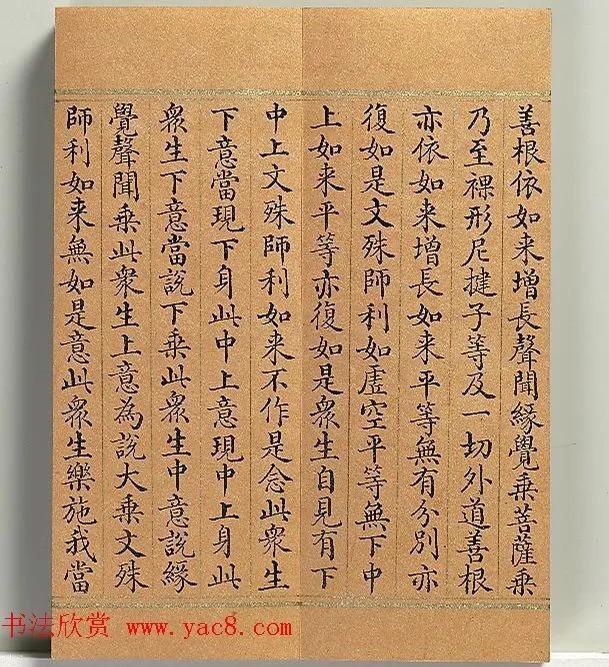 善根依如来增長聲聞緣覺乗菩薩乗
乃至裸形尼揵子等及一切外道善根
亦依如来增長如来平等無有分別亦
復如是文殊師利如虛空平等無下中
上如来平等亦復如是衆生自見有下
中上文殊師利如来不作是念此衆生
下意當現下身此中上意現中上身此
衆生下意當說下乗此衆生中意說緣
覺聲聞乗此衆生上意為說大乗文殊
師利如来無如是意此衆生樂施我當
书法欣赏 www.yac8.com